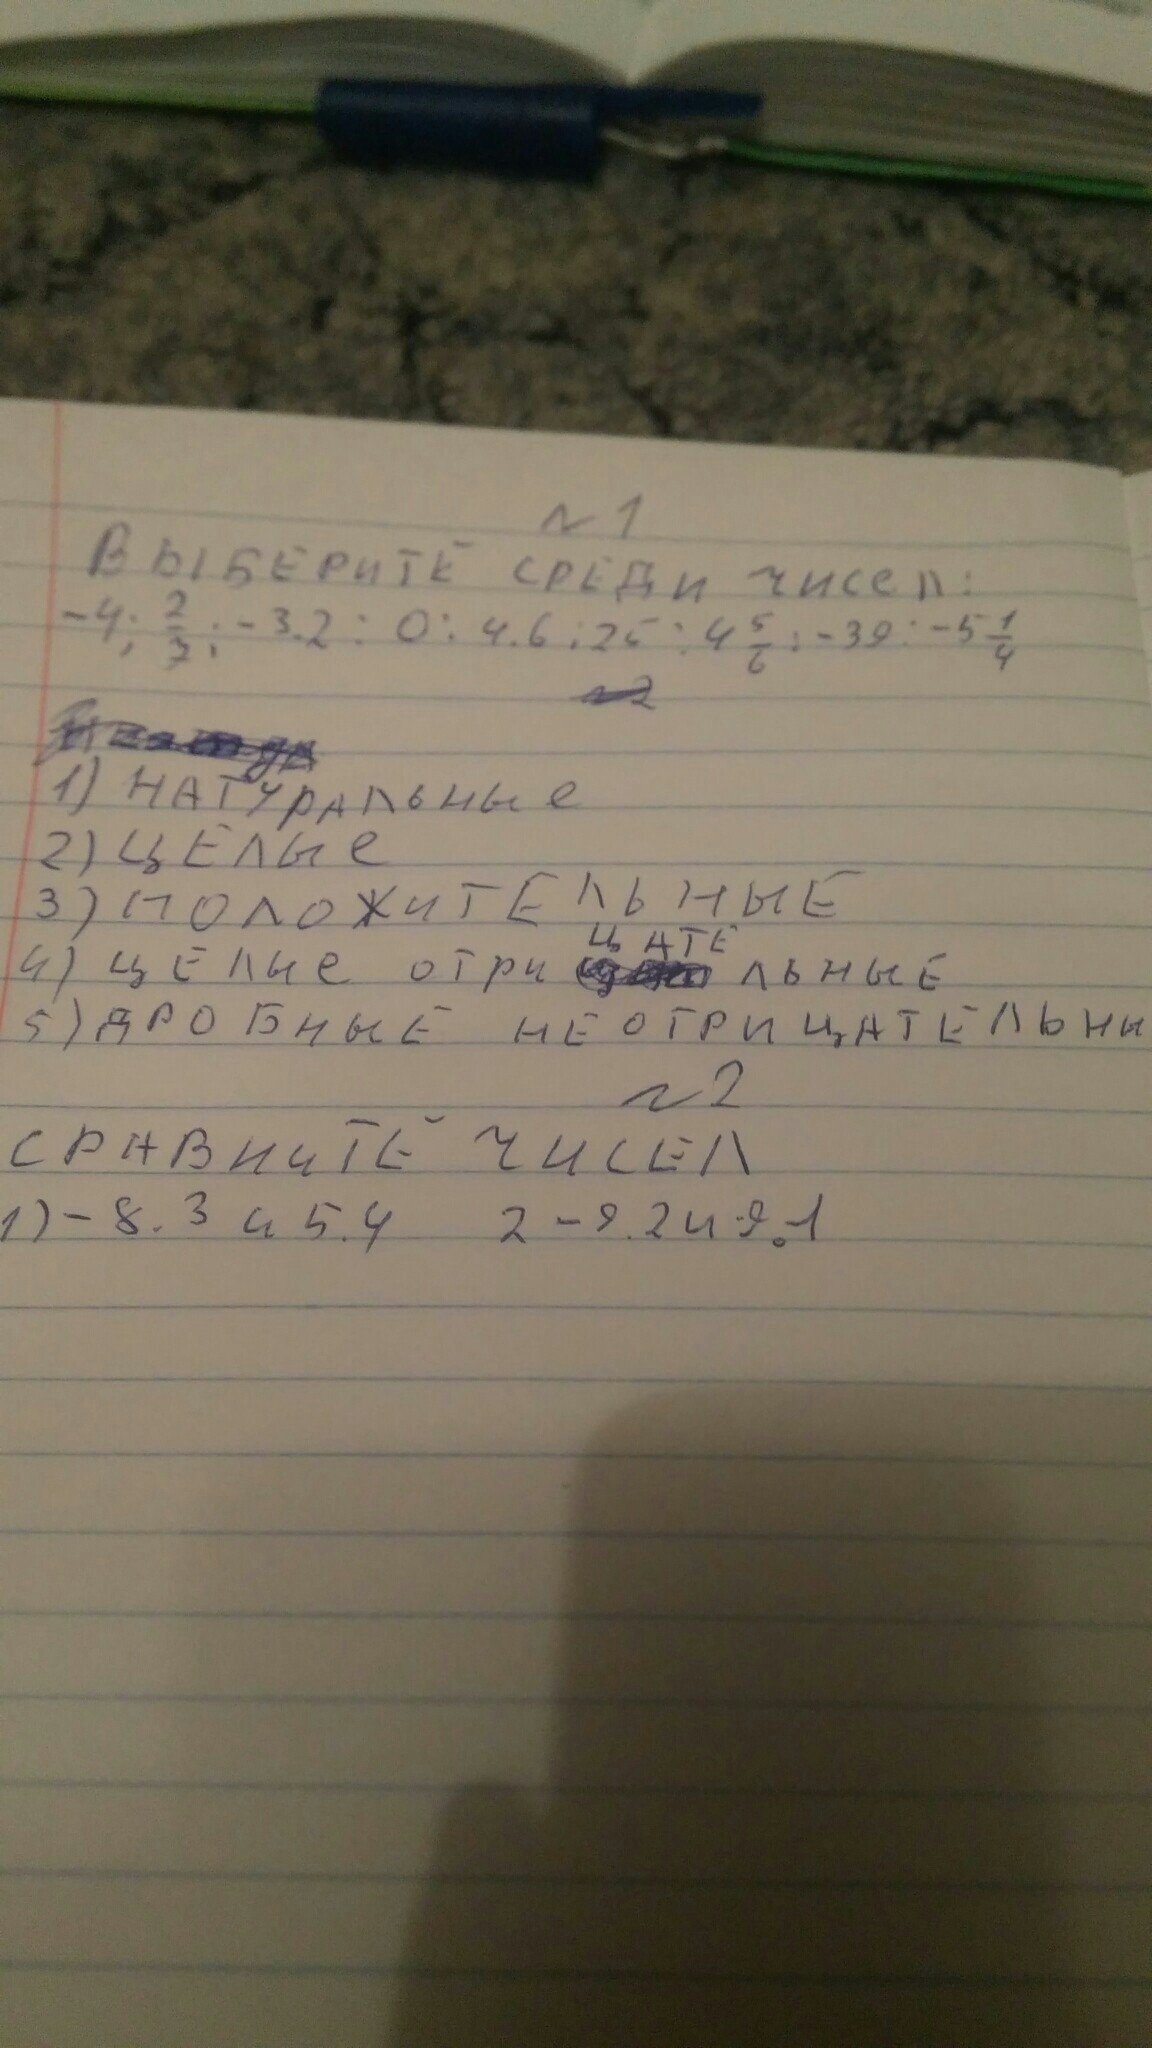 №1
ВЫБЕРИТЕ СРЕДИ ЧИСЕЛ:
-4; 2/7; -3.2: 0: 4.6; 25: 4 5/6; -39: -5 1/4
№2
1) НАТУРАЛЬНЫе
2) ЦЕЛЫе
3) ПОЛОЖИТЕЛЬНЫЕ
4) ЦЕЛЫе ОТРИЦАТЕЛЬНЫЕ
5) ДРОБНЫЕ НЕОТРИЦАТЕЛЬНЫ
№2
СРАВНИТЕ ЧИСЕЛ
1) -8.3 и 5.4 2 -9.2 и 9.1